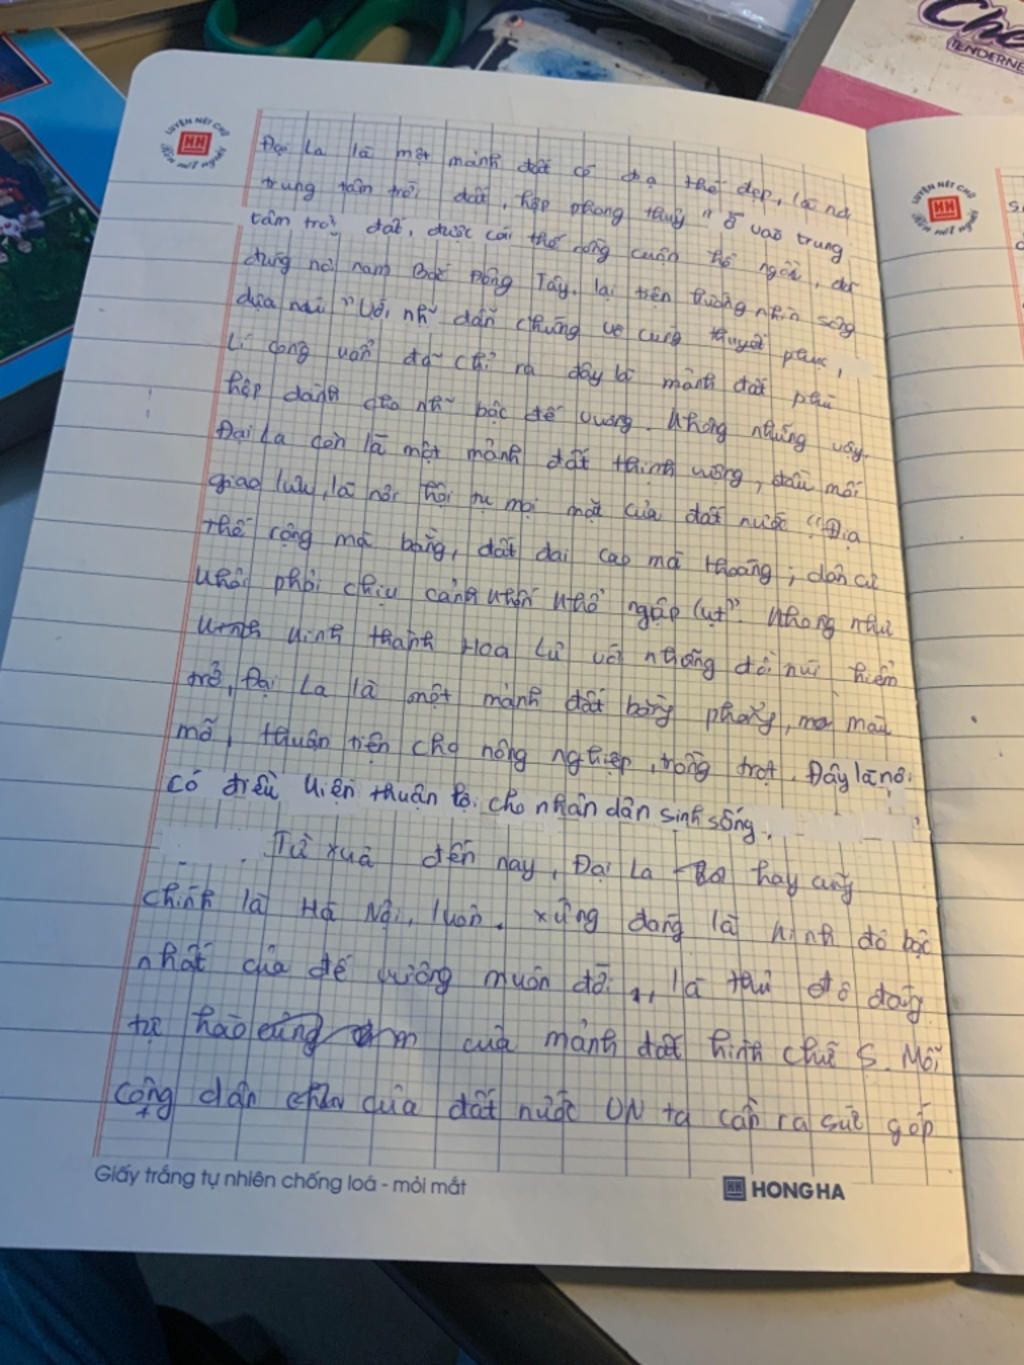 Che
TENDERNE
LUYỆN NÉT CHỮ
HH
RÈN NẾT NGƯỜI
LUYỆN NÉT CHỮ
HH
Đại La là một mảnh đất có địa thế đẹp, là nơi
trung tâm trời đất, hợp phong thuỷ "ở vào trung
tâm trời đất, được cái thế rồng cuộn hổ ngồi, đã
đúng nơi nam Bắc Đông Tây, lại tiện hướng nhìn sông
dựa núi" Với nhữ dẫn chứng vô cùng thuyết phục,
Lí công uẩn đã chỉ ra đây là mảnh đất phù
hợp dành cho nhữ bậc đế vương. Không những vậy,
Đại La còn là một mảnh đất thịnh vượng, đầu mối
giao lưu, là nơi hội tụ mọi mặt của đất nước "Địa
thế rộng mà bằng, đất đai cao mà thoáng; dân cư
khỏi phải chịu cảnh khốn khổ ngập lụt". Không như
kinh thành Hoa Lư với những đồi núi hiểm
trở, Đại La là một mảnh đất bằng phẳng, màu
mỡ, thuận tiện cho nông nghiệp, trồng trọt. Đây là nơi
có điều kiện thuận lợi cho nhân dân sinh sống.
Từ xưa đến nay, Đại La hay cũng
chính là Hà Nội, luôn xứng đáng là kinh đô bậc
nhất của đế vương muôn đời, là thủ đô đáng
tự hào của mảnh đất hình chữ S. Mỗi
công dân của đất nước VN ta cần ra sức góp
Giấy trắng tự nhiên chống loá - mỏi mắt
HH HONG HA